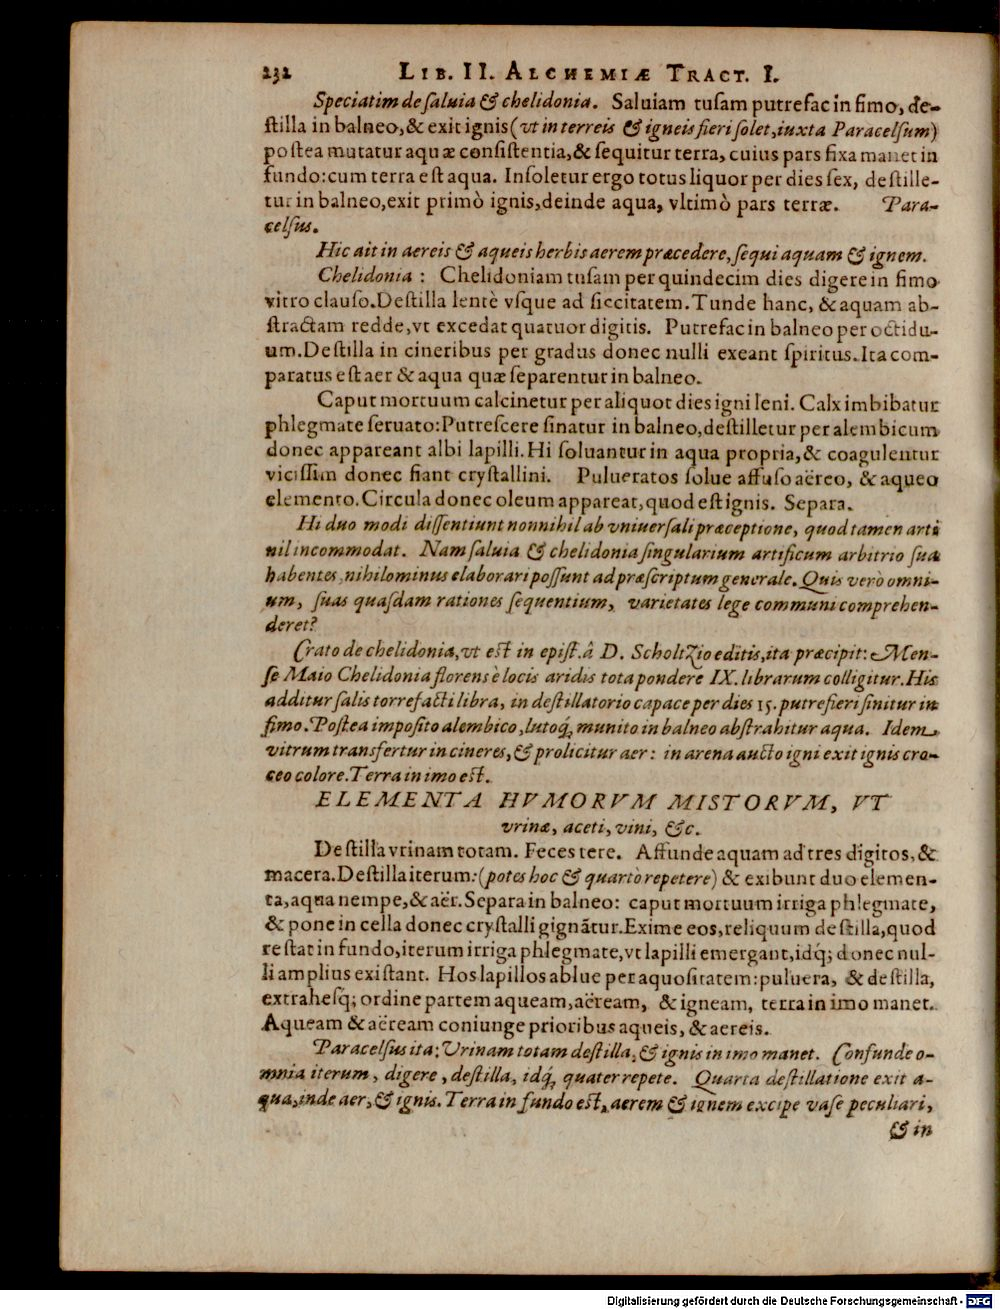 232 LIB. II. ALCHEMIÆ TRACT. I.
Speciatim de ſaluia & chelidonia. Saluiam tuſam putrefac in fimo, de-
ſtilla in balneo, & exit ignis (vt in terreis & igneis fieri ſolet, iuxta Paracelſum)
poſtea mutatur aquæ conſiſtentia, & ſequitur terra, cuius pars fixa manet in
fundo: cum terra eſt aqua. Inſoletur ergo totus liquor per dies ſex, deſtille-
tur in balneo, exit primò ignis, deinde aqua, vltimò pars terræ. Para-
celſus.
Hic ait in aereis & aqueis herbis aerem præcedere, ſequi aquam & ignem.
Chelidonia: Chelidoniam tuſam per quindecim dies digere in fimo
vitro clauſo. Deſtilla lentè vſque ad ſiccitatem. Tunde hanc, & aquam ab-
ſtractam redde, vt excedat quatuor digitis. Putrefac in balneo per octidu-
um. Deſtilla in cineribus per gradus donec nulli exeant ſpiritus. Ita com-
paratus eſt aer & aqua quæ ſeparentur in balneo.
Caput mortuum calcinetur per aliquot dies igni leni. Calx imbibatur
phlegmate ſeruato: Putreſcere ſinatur in balneo, deſtilletur per alembicum
donec appareant albi lapilli. Hi ſoluantur in aqua propria, & coagulentur
viciſſim donec fiant cryſtallini. Pulueratos ſolue affuſo aëreo, & aqueo
elemento. Circula donec oleum appareat, quod eſt ignis. Separa.
Hi duo modi diſſentiunt nonnihil ab vniuerſali præceptione, quod tamen arti
nil incommodat. Nam ſaluia & chelidonia ſingularium artificum arbitrio ſua
habentes, nihilominus elaborari poſſunt ad præſcriptum generale. Quis verò omni-
um, ſuas quaſdam rationes ſequentium, varietates lege communi comprehen-
deret?
Crato de chelidonia, vt eſt in epiſt. â D. Scholtzio editis, ita præcipit: Men-
ſe Maio Chelidonia florens è locis aridis tota pondere IX. librarum colligitur. His
additur ſalis torrefacti libra, in deſtillatorio capace per dies 15. putrefieri ſinitur in
fimo. Poſtea impoſito alembico, lutoq́; munito in balneo abſtrahitur aqua. Idem
vitrum transfertur in cineres, & prolicitur aer: in arena aucto igni exit ignis cro-
ceo colore. Terra in imo eſt.
ELEMENTA HVMORVM MISTORVM, VT
vrinæ, aceti, vini, &c.
Deſtilla vrinam totam. Feces tere. Affunde aquam ad tres digitos, &
macera. Deſtilla iterum: (potes hoc & quartò repetere) & exibunt duo elemen-
ta, aqua nempe, & aër. Separa in balneo: caput mortuum irriga phlegmate,
& pone in cella donec cryſtalli gignãtur. Exime eos, reliquum deſtilla, quod
reſtat in fundo, iterum irriga phlegmate, vt lapilli emergant, idq́; donec nul-
li amplius exiſtant. Hos lapillos ablue per aquoſitatem: puluera, & deſtilla,
extraheſq́; ordine partem aqueam, aëream, & igneam, terra in imo manet.
Aqueam & aëream coniunge prioribus aqueis, & aereis.
Paracelſus ita: Vrinam totam deſtilla, & ignis in imo manet. Confunde o-
mnia iterum, digere, deſtilla, idq́; quater repete. Quarta deſtillatione exit a-
qua, inde aer, & ignis. Terra in fundo eſt, aerem & ignem excipe vaſe peculiari,
& in
Digitalisierung gefördert durch die Deutsche Forschungsgemeinschaft - DFG